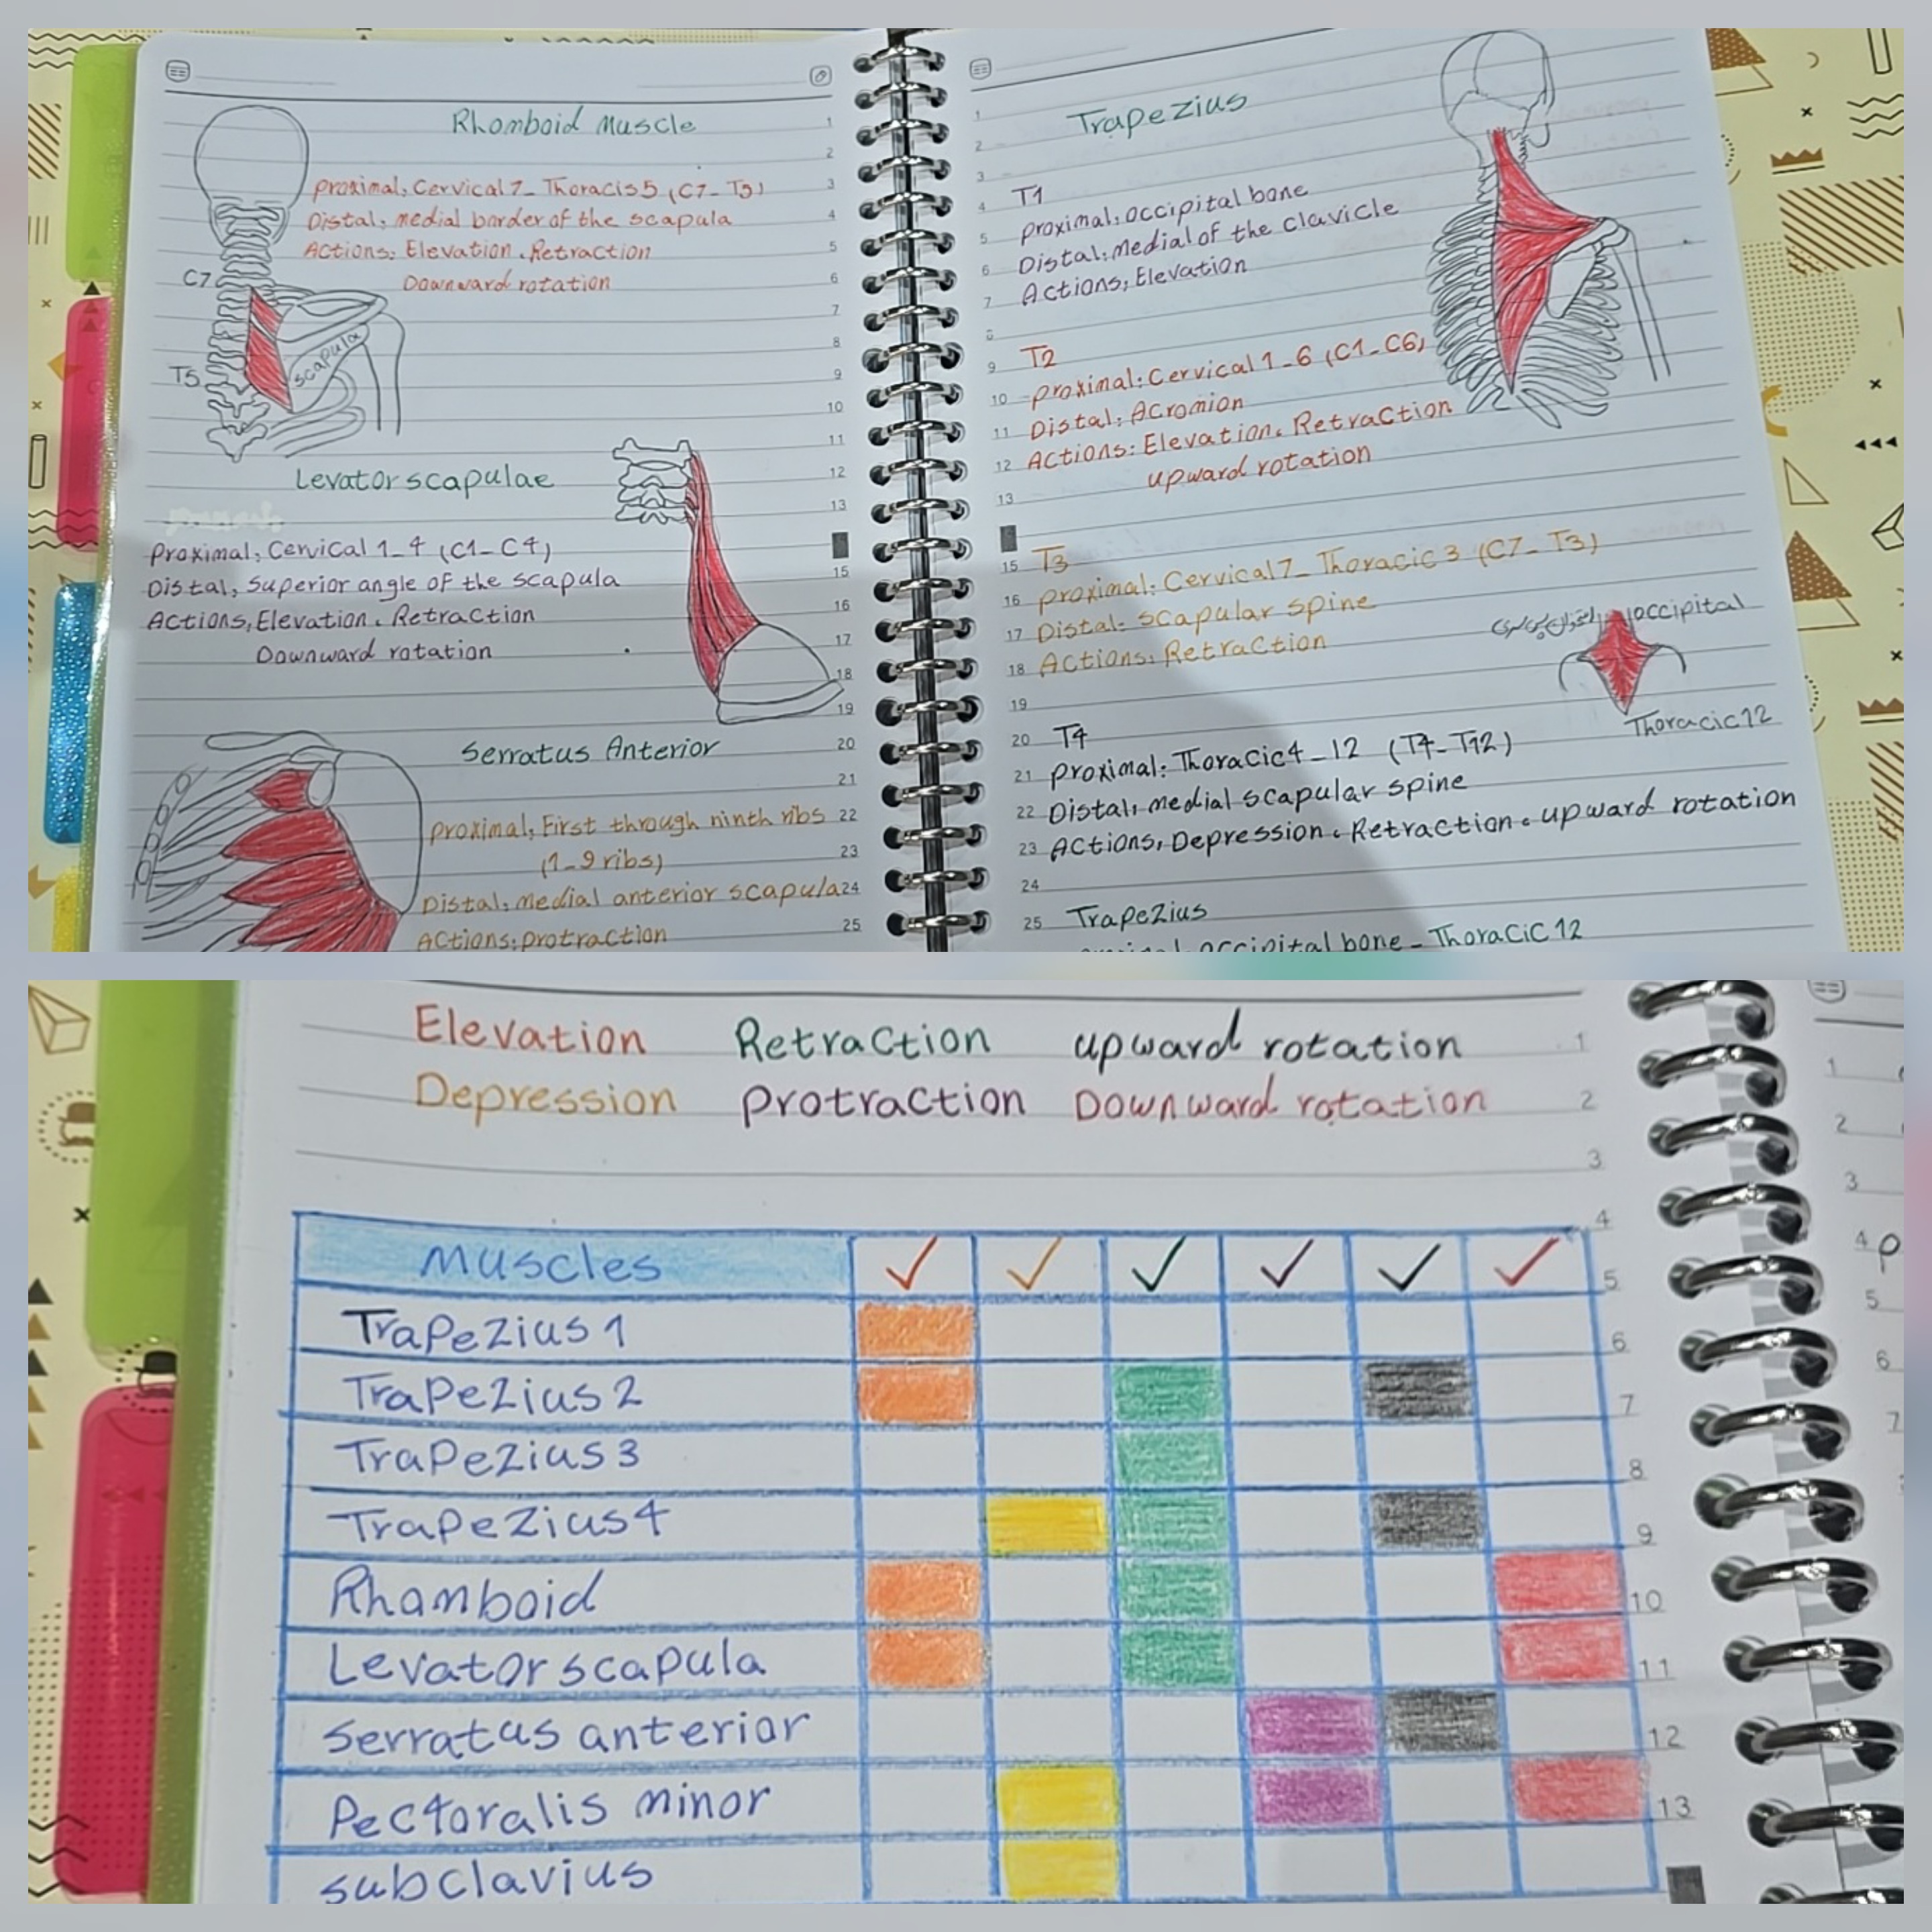 Rhomboid Muscle
proximal: Cervical 7_ Thoracis 5 (C7_ T5)
Distal: medial border of the scapula
Actions: Elevation . Retraction
Downward rotation
C7
scapula
T5
Levator scapulae
proximal: Cervical 1_4 (C1_C4)
Distal: superior angle of the scapula
Actions: Elevation . Retraction
Downward rotation
Serratus Anterior
proximal: First through ninth ribs
(1_9 ribs)
Distal: medial anterior scapula
Actions: protraction
1
2
3
4
5
6
7
8
9
10
11
12
13
15
16
17
18
19
20
21
22
23
24
25
Trapezius
T1
proximal: occipital bone
Distal: medial of the clavicle
Actions: Elevation
T2
proximal: Cervical 1_6 (C1_C6)
Distal: Acromion
Actions: Elevation . Retraction
upward rotation
T3
proximal: Cervical 7_ Thoracic 3 (C7_ T3)
Distal: scapular spine
Actions: Retraction
occipital
Thoracic 12
T4
proximal: Thoracic 4_12 (T4_T12)
Distal: medial scapular spine
Actions: Depression . Retraction . upward rotation
Trapezius
occipital bone _ Thoracic 12
1
2
3
4
5
6
7
8
9
10
11
12
13
15
16
17
18
19
20
21
22
23
24
25
Elevation Retraction upward rotation
Depression protraction Downward rotation
Muscles ✓ ✓ ✓ ✓ ✓ ✓
Trapezius 1
Trapezius 2
Trapezius 3
Trapezius 4
Rhomboid
Levator scapula
serratus anterior
Pectoralis minor
subclavius
1
2
3
4
5
6
7
8
9
10
11
12
13
1
2
3
4 p
5
6
7